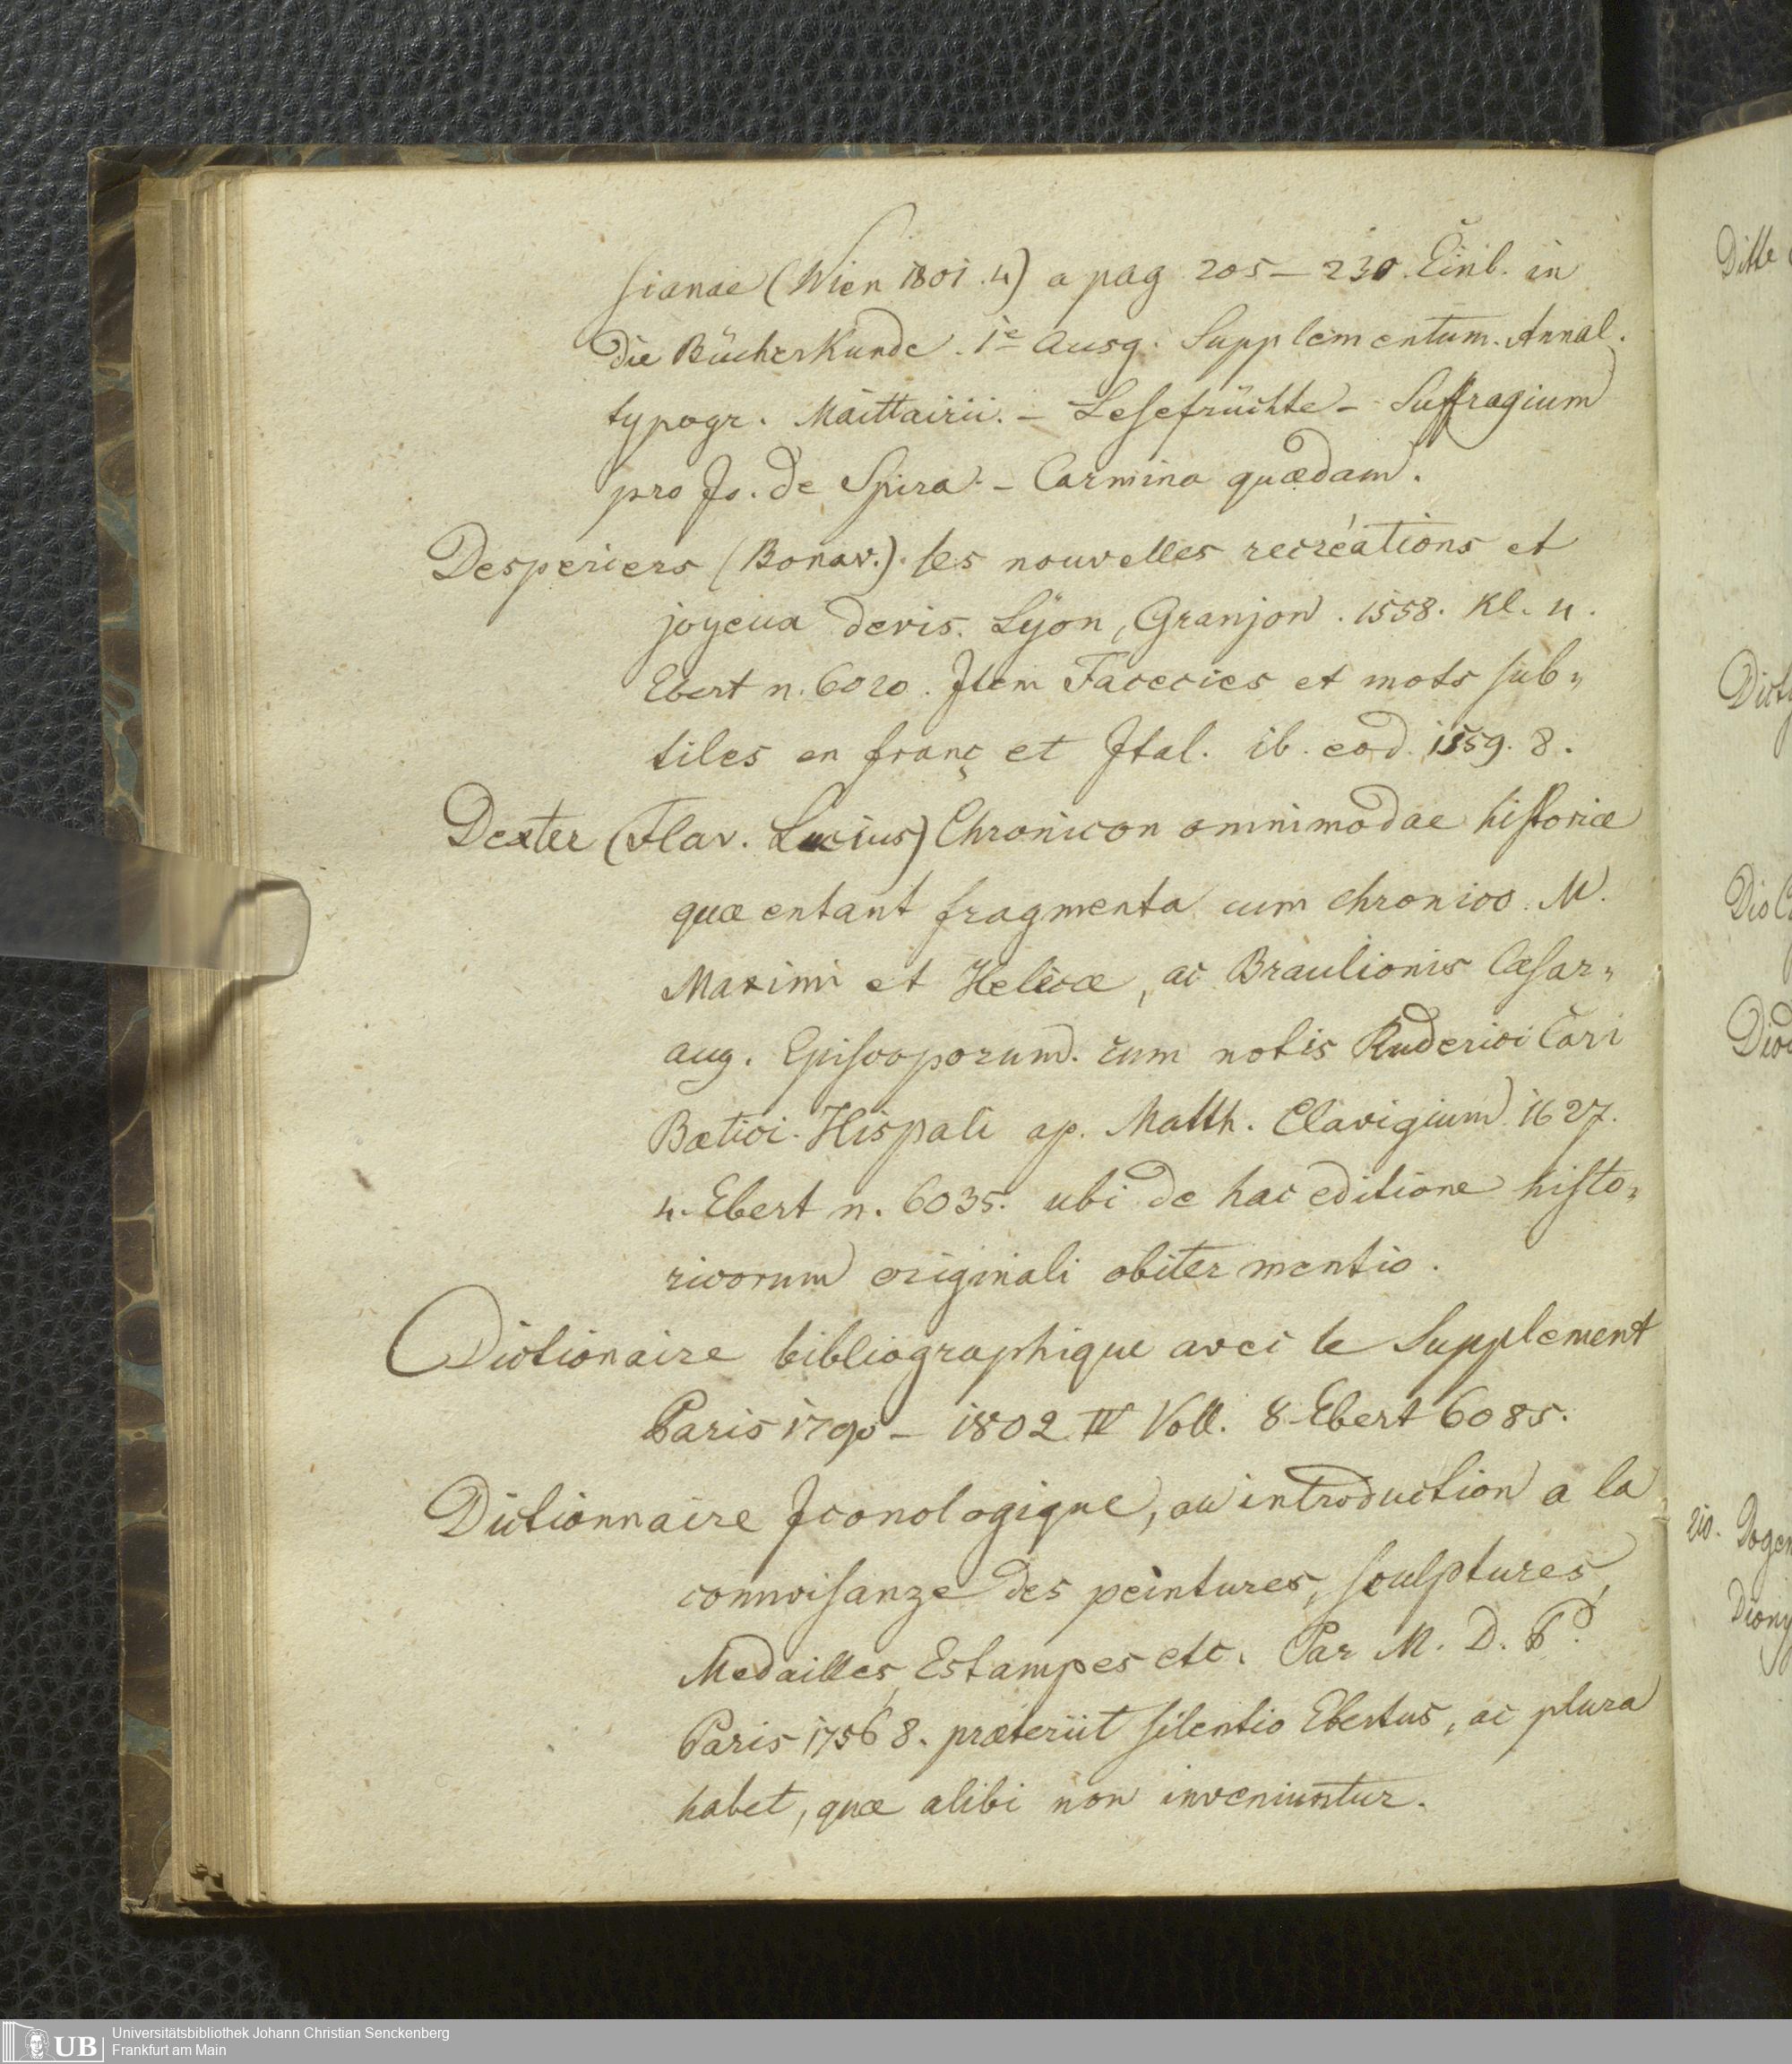 sianae (Wien 1801. 4) a pag 205 – 230. Einl. in
die Bücherkunde. 1e Ausg. Supplementum. Annal.
typogr. Maittairii. – Lesefrüchte – Suffragium
pro Jo. de Spira – Carmina quædam.
Desperiers (Bonav.). les nouvelles recréations et
joyeux devis. Lyon, Granjon. 1558. Kl. 4.
Ebert n. 6020. Item Facecies et mots sub„
tiles en franç et Ital. ib. eod. 1559. 8.
Dexter (Flav. Lucius) Chronicon omnimodae historiæ
quæ extant fragmenta cum chronico M.
Maximi et Helecæ, ac Braulionis Cæsar„
aug. Episcoporum. cum notis Ruderici Cari
Bætici. Hispali ap. Matth. Clavigium 1627.
4. Ebert n. 6035. ubi de hac editione histo„
ricorum originali obiter mentio.
Dictionaire bibliographique avec le Supplement
Paris 1790 – 1802 IV Voll. 8 Ebert 6085.
Dictionnaire Iconologique, ou introduction a la
connoisanze des peintures, sculptures,
Medailles, Estampes etc. Par M. D. P.
Paris 1756 8. præteriit silentio Ebertus, ac plura
habet, quæ alibi non inveniuntur.
Ditte
Dicty
Dio C
Diod
210. Dogen
Diony
UB
Universitätsbibliothek Johann Christian Senckenberg
Frankfurt am Main